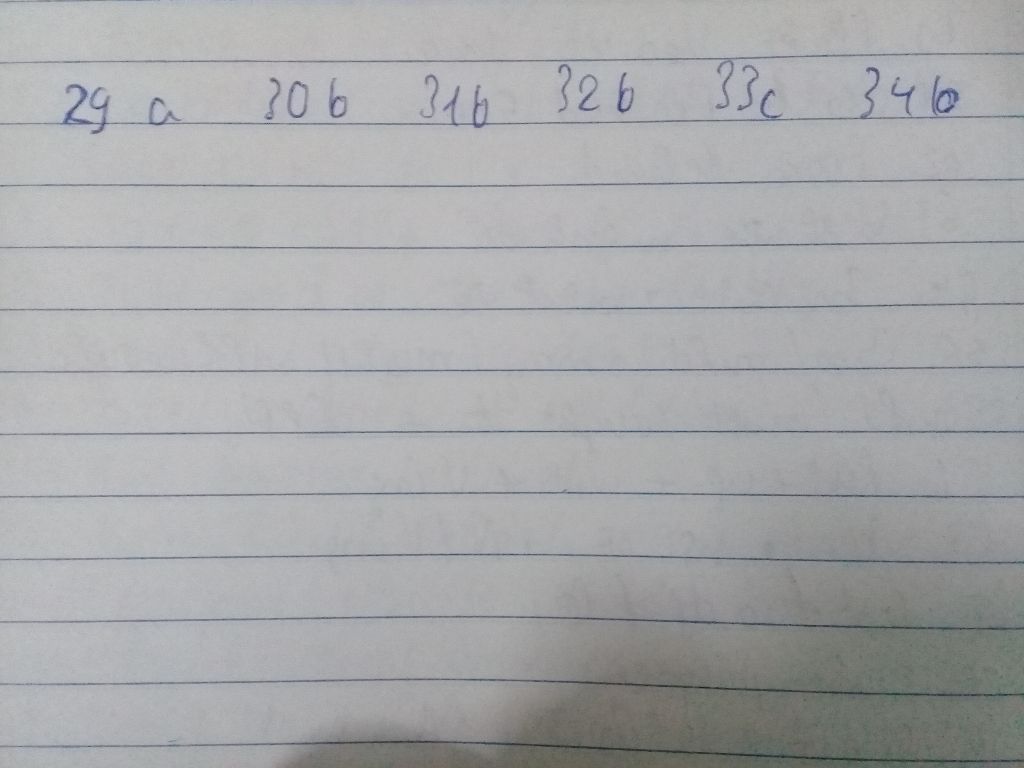 29 a 30 b 31b 32 b 33c 34 b